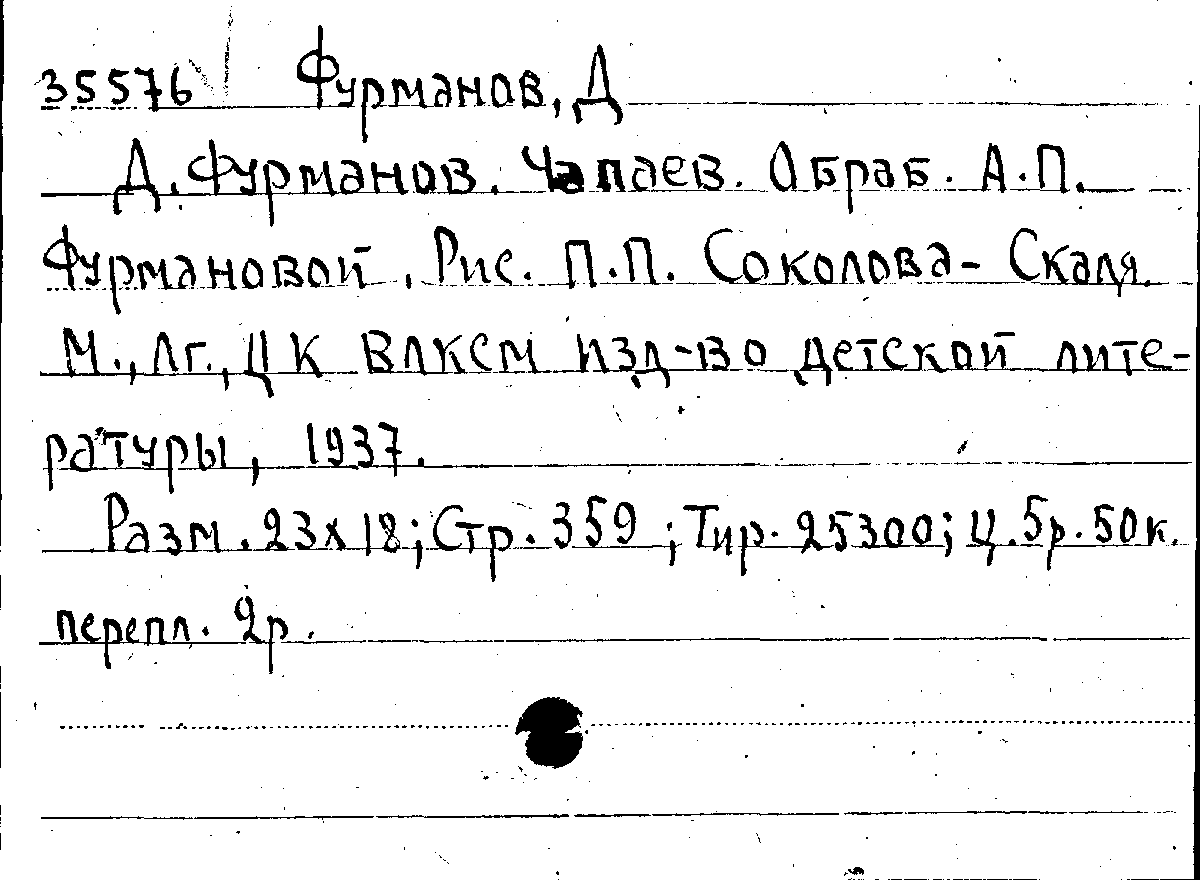 35576 Фурманов, Д
Д. Фурманов. Чапаев. Обраб. А.П.
Фурмановой. Рис. П.П. Соколова-Скаля.
М., Лг., ЦК ВЛКСМ изд-во детской лите-
ратуры, 1937.
Разм. 23х18; Стр. 359; Тир. 25300; Ц. 5р. 50к.
перепл. 2р.